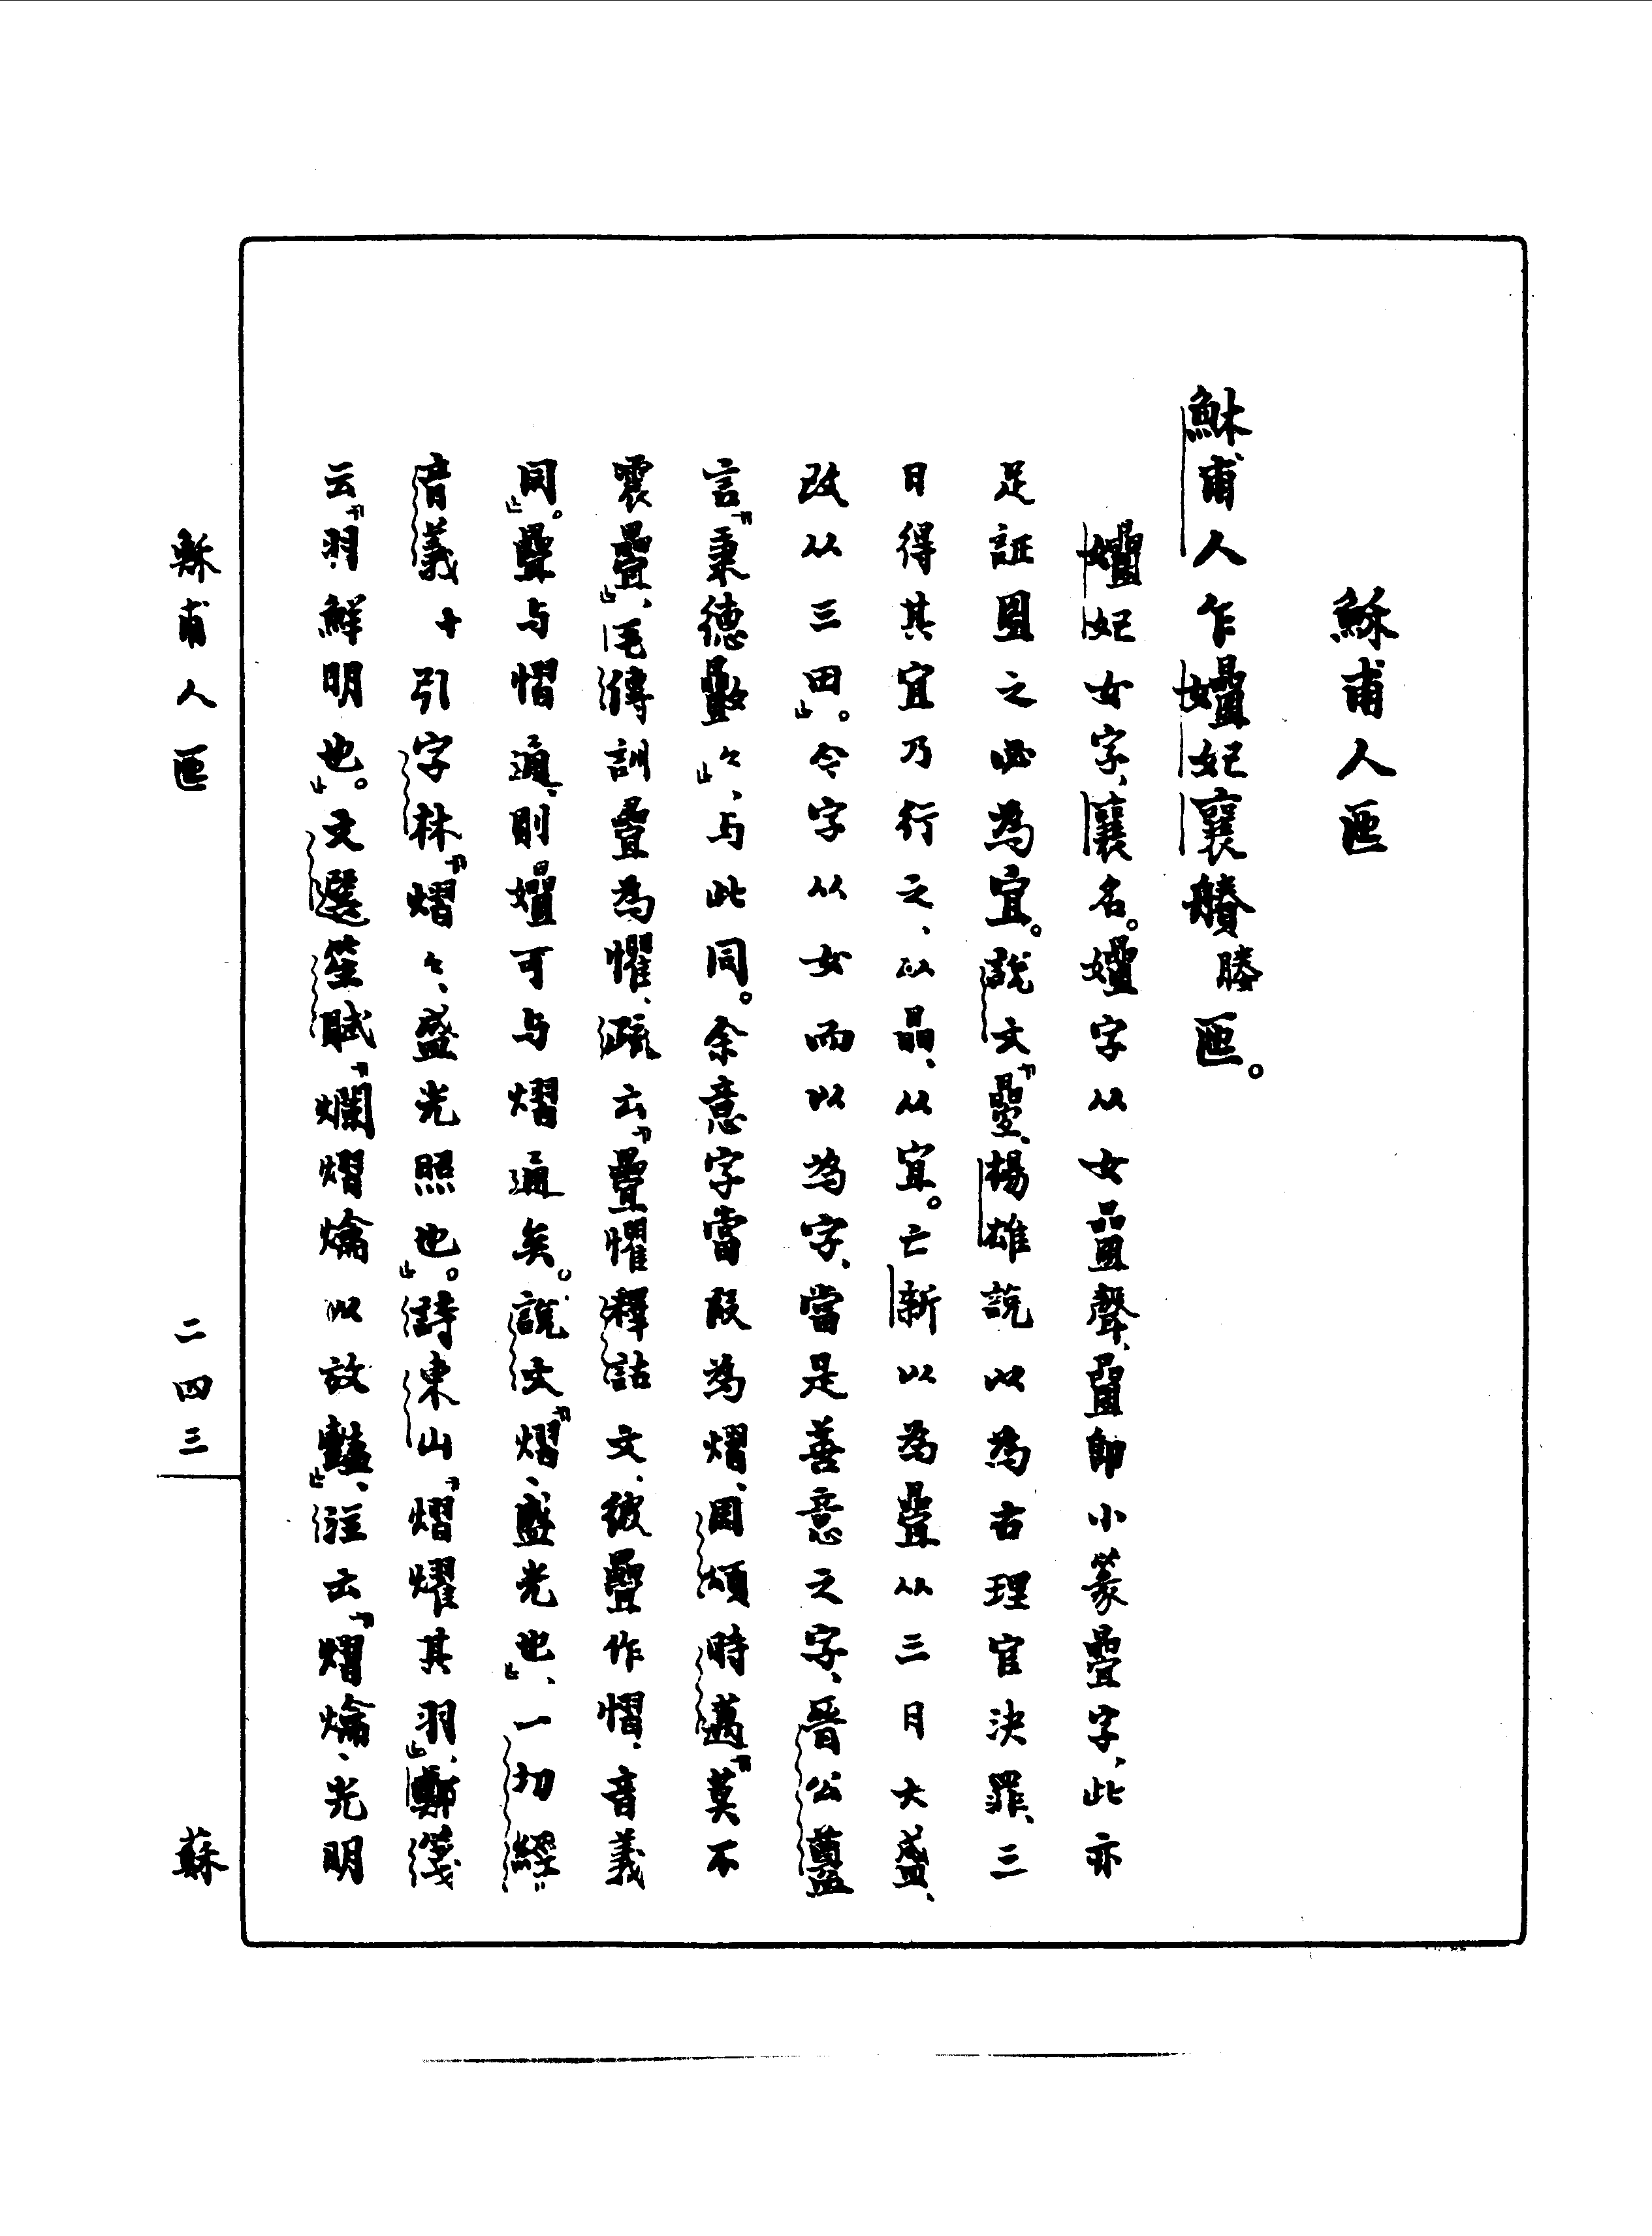 穌甫人匜
穌甫人乍㜪妃襄𦩻媵匜。
㜪妃女字、襄名。㜪字从女𤴁聲、𤴁即小篆疊字、此亦
足証𥁰之必為宜。說文「疊、楊雄說以為古理官決罪、三
日得其宜乃行之、从晶、从宜。亡新以為疊从三日大盛、
改从三田」。今字从女而以為字、當是善意之字、晉公𥂴
言「秉德𤴁々」、与此同。余意字當叚為熠、周頌時邁「莫不
震疊」、毛傳訓疊為懼、疏云「疊懼釋詁文、彼疊作慴、音義
同」。疊与慴通、則㜪可与熠通矣。說文「熠、盛光也」、一切經
音義十引字林「熠々、盛光照也」。詩東山「熠燿其羽」、鄭箋
云「羽鮮明也」。文選笙賦「爛熠爚以放豔」、注云「熠爚、光明
穌甫人匜
二四三
蘇